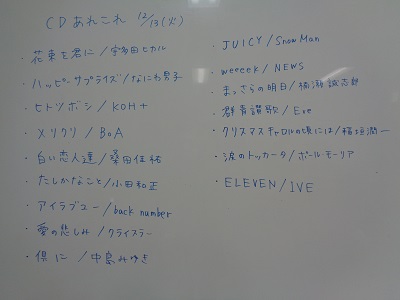 CDあれこれ 12/13(火)
・花束を君に/宇多田ヒカル
・ハッピーサプライズ/なにわ男子
・ヒトツボシ/KOH+
・メリクリ/BoA
・白い恋人達/桑田佳祐
・たしかなこと/小田和正
・アイラブユー/back number
・愛の悲しみ/クライスラー
・倶に/中島みゆき
・JUICY/SnowMan
・weeeek/NEWS
・まっさらの明日/楠瀬誠志郎
・群青讃歌/Eve
・クリスマスキャロルの頃には/稲垣潤一
・涙のトッカータ/ポールモーリア
・ELEVEN/IVE